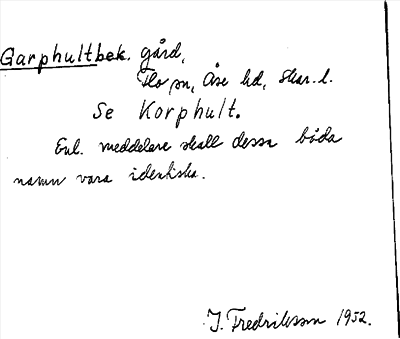 Garphultbek. gård,
Flo sn, Åse hd, Skar. l.
Se Korphult.
Enl. meddelare skall dessa båda
namn vara identiska.
J. Fredriksson 1952.